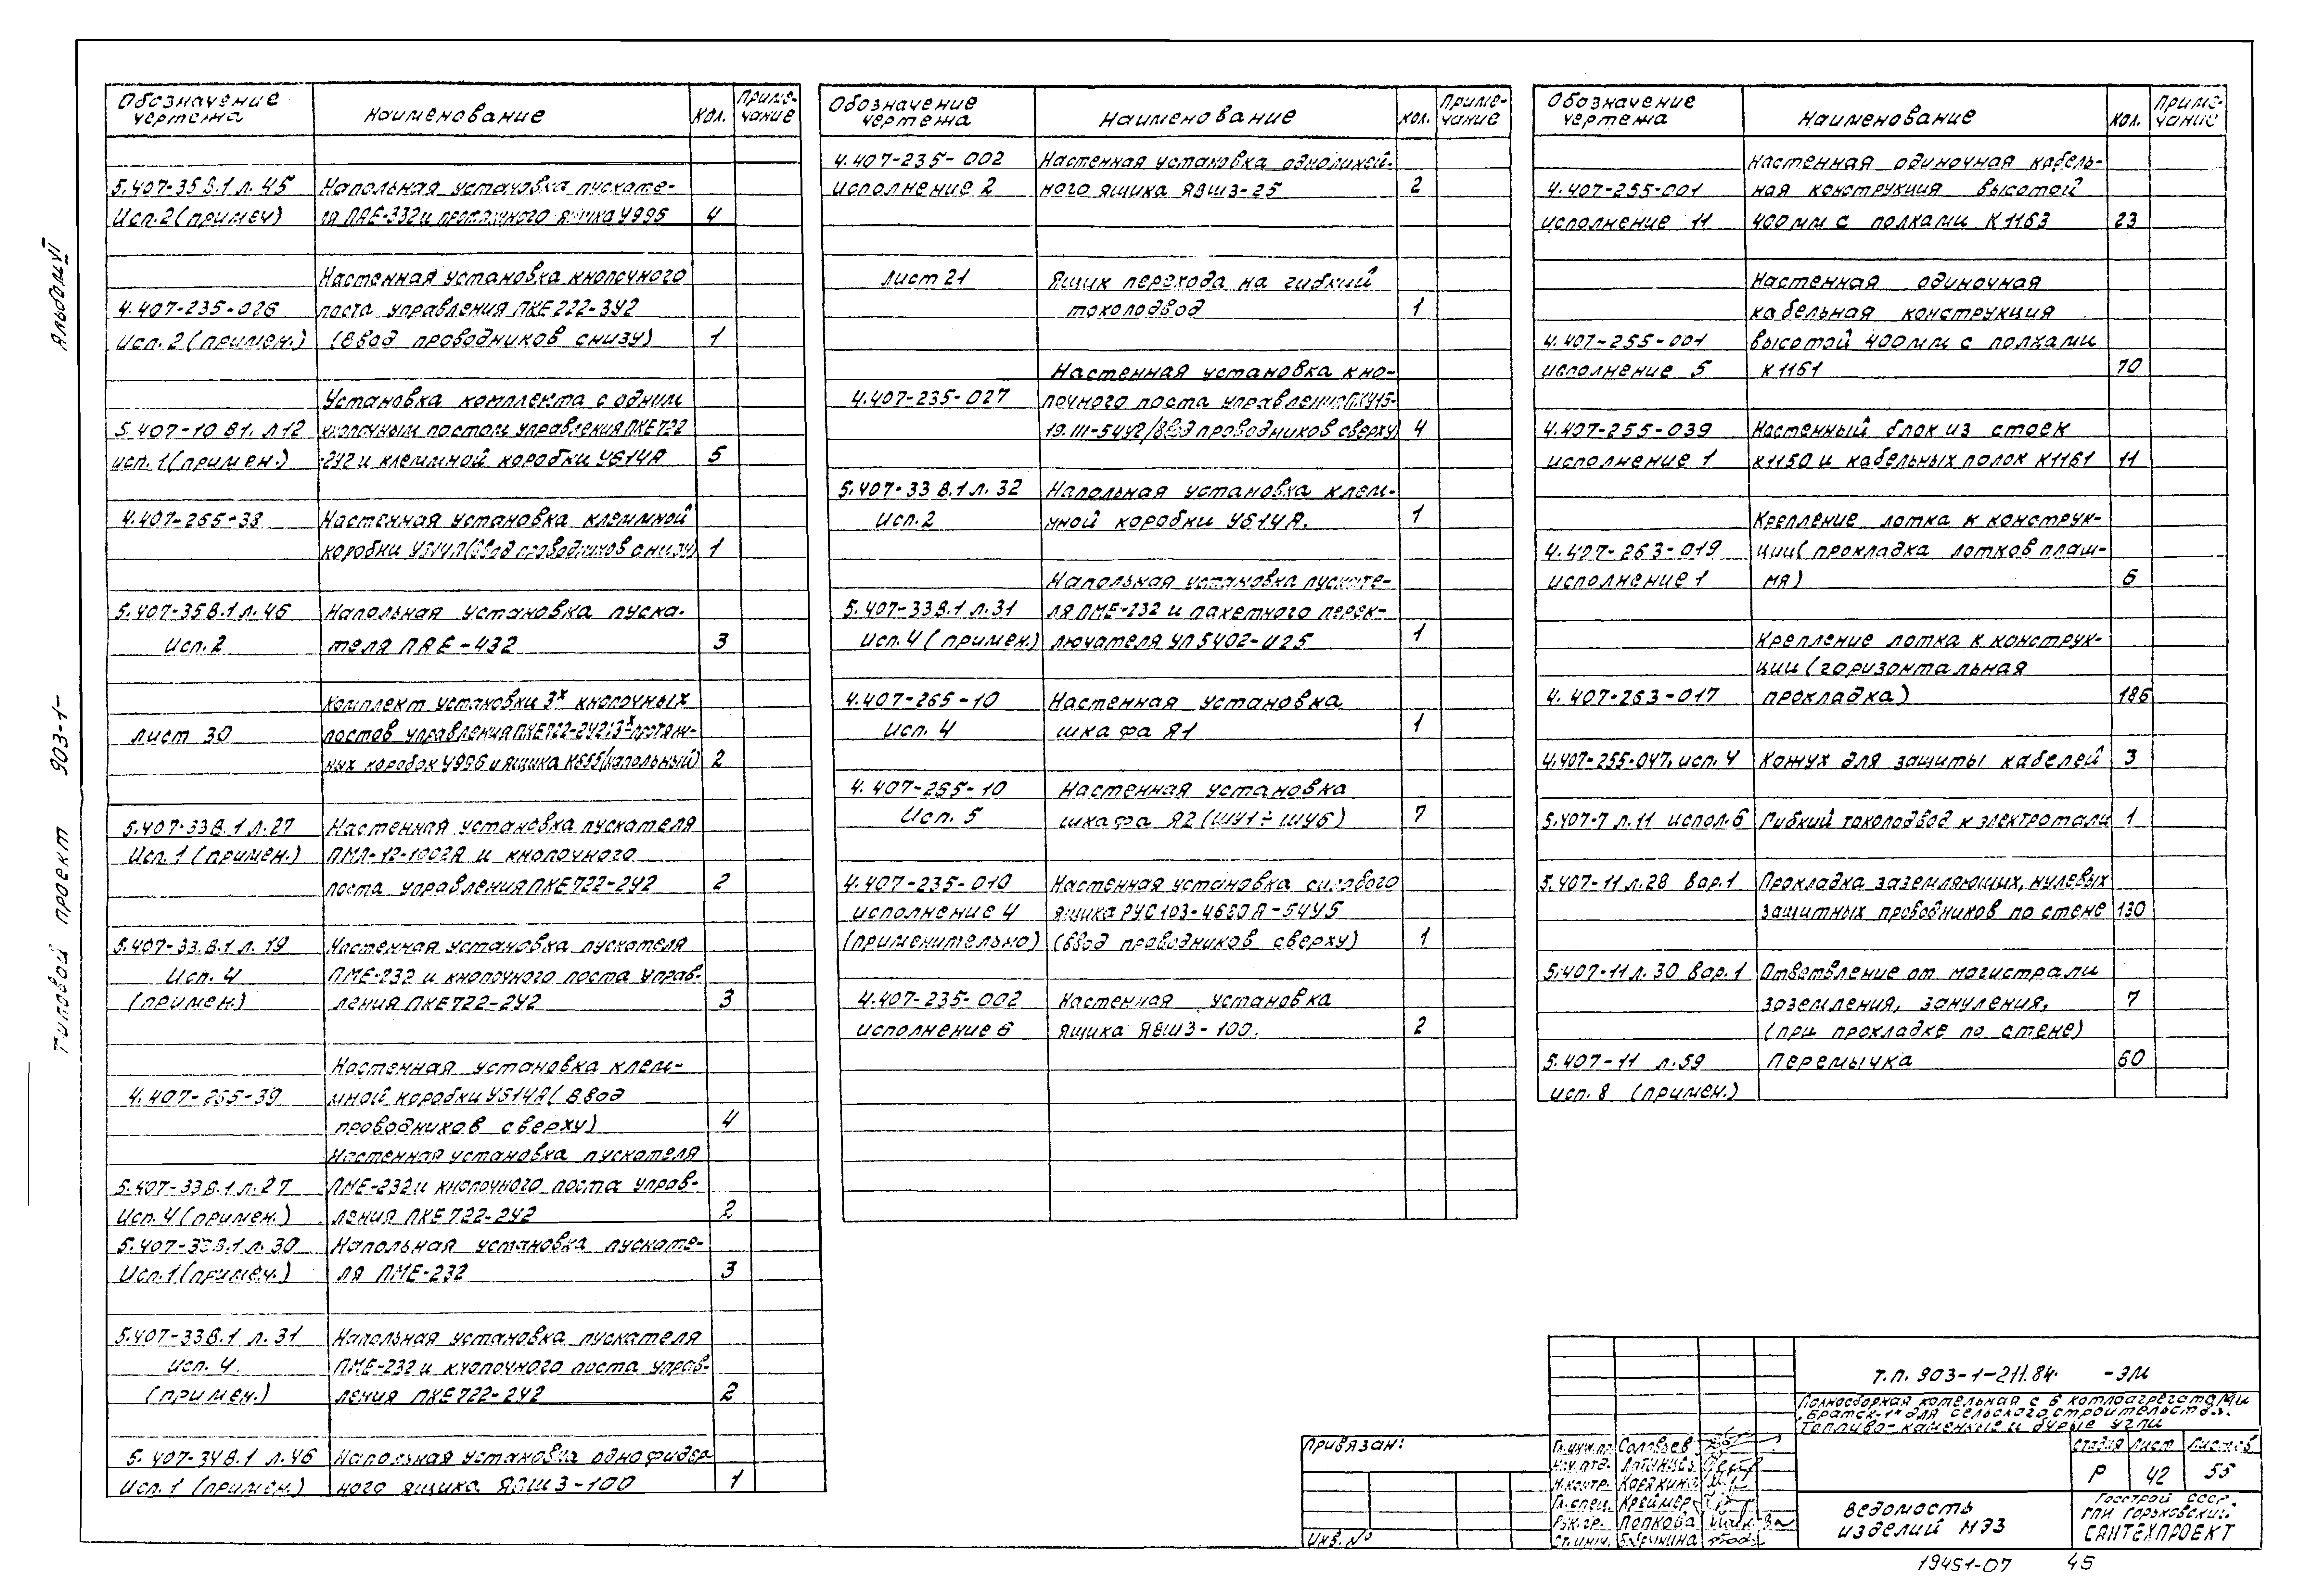 Альбом VI
Типовой проект 903-1-
Обозначение чертежа Наименование Кол. Примечание
5.407-35 В.1 л. 45 Напольная установка пускате-
Исп.2 (примеч) ля ПАЕ-332 и протяжного ящика У996 4
Настенная установка кнопочного
4.407-235-026 поста управления ПКЕ 222-3У2
Исп. 2 (примен.) (ввод проводников снизу) 1
Установка комплекта с одним
5.407-10 В1. л 12 кнопочным постом управления ПКЕ 722
исп. 1 (примен.) -2У2 и клеммной коробки У614А 5
4.407-265-38 Настенная установка клеммной
коробки У614А (ввод проводников снизу) 1
5.407-35 В.1 л. 46 Напольная установка пуска-
Исп. 2 теля ПАЕ-432 3
Комплект установки 3х кнопочных
лист 30 постов управления ПКЕ722-2У2; 3х протяж-
ных коробок У996 и ящика К655 (напольный) 2
5.407-33 В.1 л.27 Настенная установка пускателя
Исп. 1 (примен.) ПМЛ-12-1002А и кнопочного
поста управления ПКЕ722-2У2 2
5.407-33.В.1 л. 19 Настенная установка пускателя
Исп. 4 ПМЕ-232 и кнопочного поста управ-
(примен.) ления ПКЕ722-2У2 3
Настенная установка клем-
4.407-265-39 мной коробки У614А (ввод
проводников сверху) 4
Настенная установка пускателя
5.407-33 В.1 л.27 ПМЕ-232 и кнопочного поста управ-
Исп. 4 (примен.) ления ПКЕ 722-2У2 2
5.407-33 В.1 л. 30 Напольная установка пускате-
Исп. 1 (примен.) ля ПМЕ-232 3
5.407-33 В.1 л. 31 Напольная установка пускателя
исп. 4. ПМЕ-232 и кнопочного поста управ-
(примен.) ления ПКЕ 722-2У2 2
5.407-34 В.1 л.46 Напольная установка однофидер-
Исп. 1 (примен.) ного ящика ЯВШ 3-100 1
Обозначение чертежа Наименование Кол. Примечание
4.407-235-002 Настенная установка однолиней-
исполнение 2 ного ящика ЯВШ 3-25 2
лист 21 Ящик перехода на гибкий
токоподвод 1
Настенная установка кно-
4.407-235-027 почного поста управления ПКУ15-
19.III-54У2 /ввод проводников сверху) 4
5.407-33 В.1 л. 32 Напольная установка клем-
Исп.2 мной коробки У614А. 1
Напольная установка пускате-
5.407-33 В.1 л.31 ля ПМЕ-232 и пакетного перек-
исп. 4 (примен.) лючателя УП 5402-И25 1
4.407-265-10 Настенная установка
Исп. 4 шкафа Я1 1
4.407-265-10 Настенная установка
Исп. 5 шкафа Я2 (ШУ1÷ШУ6) 7
4.407-235-010 Настенная установка силового
исполнение 4 ящика РУС103-4620А-54У5
(применительно) (ввод проводников сверху) 1
4.407-235-002 Настенная установка
исполнение 6 ящика ЯВШ3-100. 2
Обозначение чертежа Наименование Кол. Примечание
Настенная одиночная кабель-
4.407-255-001 ная конструкция высотой
исполнение 11 400 мм с полками К 1163 23
Настенная одиночная
кабельная конструкция
4.407-255-001 высотой 400 мм с полками
исполнение 5 К 1161 70
4.407-255-039 Настенный блок из стоек
исполнение 1 К1150 и кабельных полок К1161 11
Крепление лотка к конструк-
4.407-263-019 ции (прокладка лотков плаш-
исполнение 1 мя) 6
Крепление лотка к конструк-
ции (горизонтальная
4.407-263-017 прокладка) 186
4.407-255-047. исп. 4 Кожух для защиты кабелей 3
5.407-7 л.11 испол.6 Гибкий токоподвод к электротали 1
5.407-11 л.28 вар.1 Прокладка заземляющих, нулевых
защитных проводников по стене 130
5.407-11 л. 30 вар.1 Ответвление от магистрали
заземления, зануления, 7
(при прокладке по стене)
5.407-11 л.59 Перемычка 60
исп. 8 (примен.)
Привязан:
Инв. №
Гл.инж.пр. Соловьев
Нач.отд.
Н.контр. Карякина
Гл.спец. Креймер
Рук.гр. Попкова
Ст.инж.
Т.П. 903-1-211.84. -ЭМ
Полносборная котельная с 6 котлоагрегатами
„Братск-1" для сельского строительства.
Топливо-каменные и бурые угли
Стадия Лист Листов
Р 42 55
Ведомость
изделий МЭЗ
Госстрой СССР
ГПИ Горьковский
САНТЕХПРОЕКТ
19451-07 45